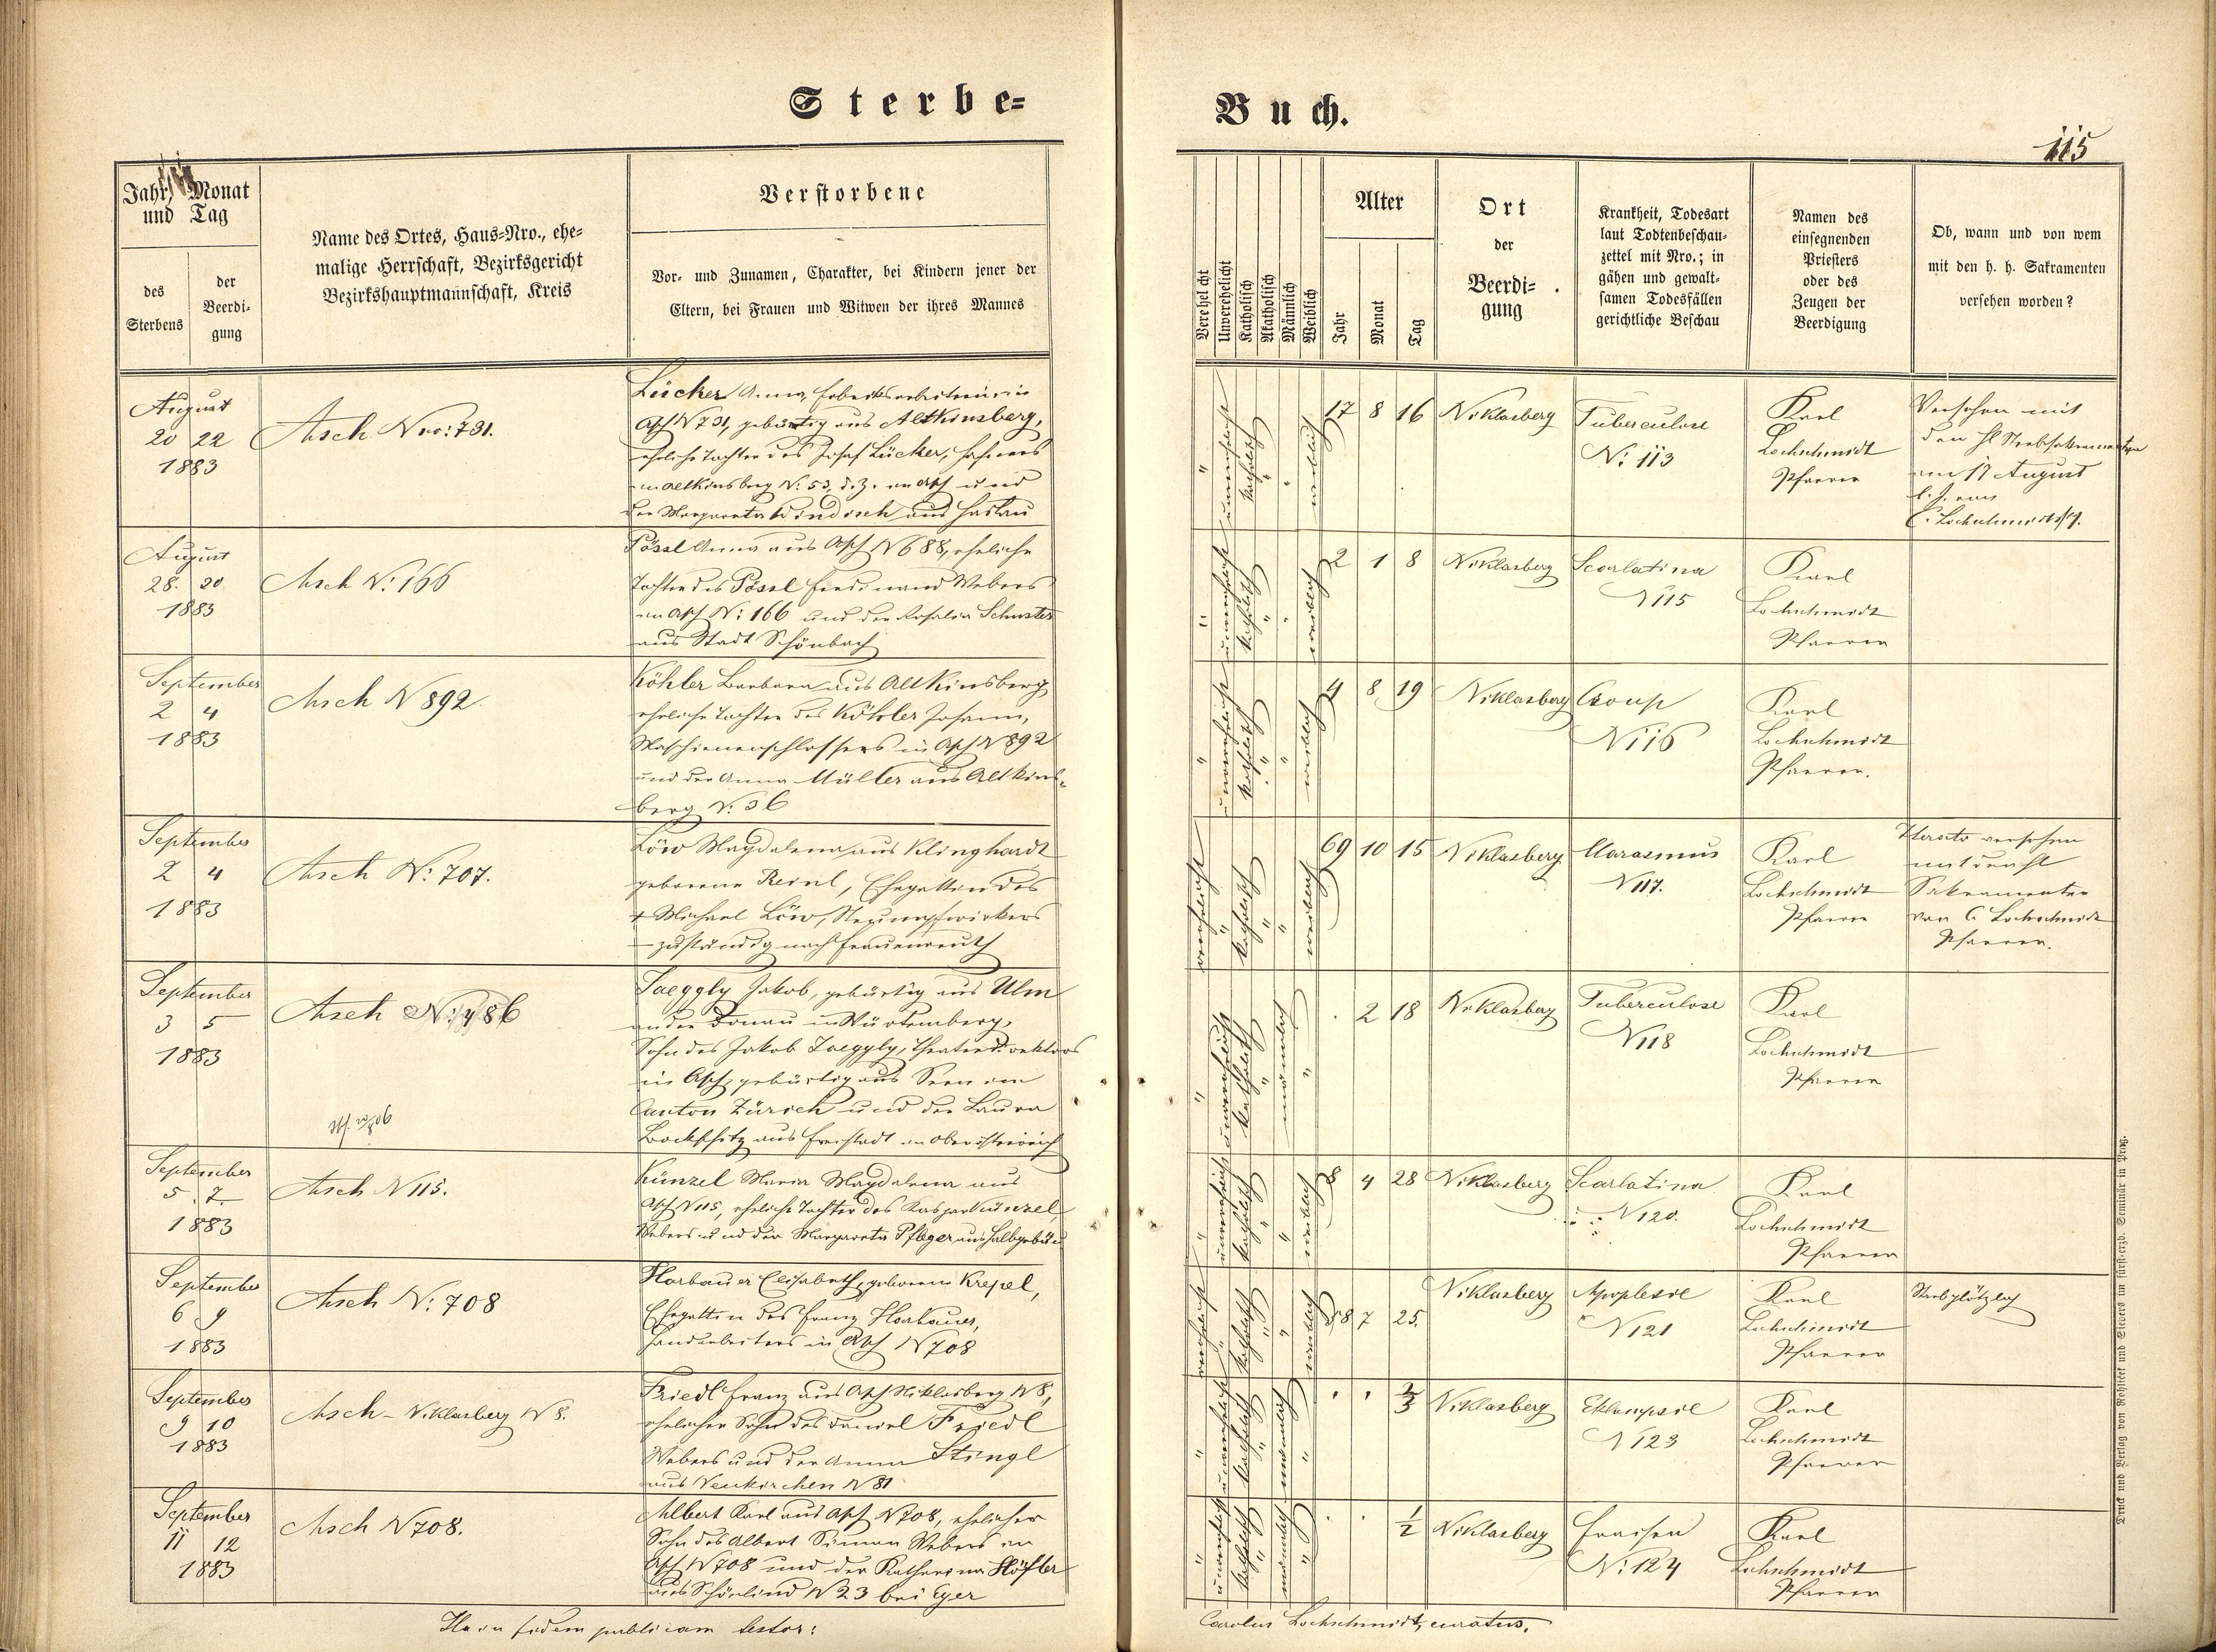 Sterbe=
Buch.
115
Jahr, Monat
und Tag
des
Sterbens
der
Beerdi-
gung
Name des Ortes, Haus-Nro., ehe-
malige Herrschaft, Bezirksgericht
Bezirkshauptmannschaft, Kreis
Verstorbene
Vor- und Zunamen, Charakter, bei Kindern jener der
Eltern, bei Frauen und Witwen der ihres Mannes
Verehelicht
Unverehelicht
Katholisch
Akatholisch
Männlich
Weiblich
Alter
Jahr
Monat
Tag
Ort
der
Beerdi-
gung
Krankheit, Todesart
laut Todtenbeschau-
zettel mit Nro.; in
gähen und gewalt-
samen Todesfällen
gerichtliche Beschau
Namen des
einsegnenden
Priesters
oder des
Zeugen der
Beerdigung
Ob, wann und von wem
mit den h. h. Sakramenten
versehen worden?
August
20 22
1883
Asch Nro: 731.
Löcker Anna, Fabriksarbeiterin in
Asch N 731, gebürtig aus Altkinsberg,
eheliche Tochter des Josef Löcker,
in Altkinsberg N: 53, d. Z. in Asch und
der Margareta Windisch aus Haslau
unverehelicht
katholisch
weiblich
17 8 16
Niklasberg
Tuberculose
N: 113
Karl
Lochschmidt
Pfarrer
Versehen mit
den hl Sterbsakramenten
am 17 August
l. J. von
C. Lochschmidt
August
28. 30.
1883
Asch N: 166
Pössl Anna aus Asch N 688, eheliche
Tochter des Pössl Ferdinand Webers
in Asch N: 166 und der Rosalia Schuster
aus Stadt Schönbach
unverehelicht
katholisch
weiblich
2 1 8
Niklasberg
Scarlatina
N 115
Karl
Lochschmidt
Pfarrer
September
2 4
1883
Asch N 892.
Köhler Barbara aus Altkinsberg
eheliche Tochter des Köhler Johann,
Maschienenschlossers in Asch N 892
und der Anna Müller aus Altkins-
berg N: 36
unverehelicht
katholisch
weiblich
4 8 19
Niklasberg
Croup
N 116
Karl
Lochschmidt
Pfarrer.
September
2 4
1883
Asch N: 707.
Löw Magdalena aus Klinghardt
geborene Reinl, Ehegattin des
+ Michael Löw, Strumpfwirkers
zuständig nach Frauenreuth
verehelicht
katholisch
weiblich
69 10 15
Niklasberg
Marasmus
N 117.
Karl
Lochschmidt
Pfarrer
Iterato versehen
mit den hl
Sakramenten
von C. Lochschmidt
Pfarrer.
September
3 5
1883
Asch N: 486
Jaeggly Jakob, gebürtig aus Ulm
an der Donau in Würtemberg,
Sohn des Jakob Jaeggly, Theaterdirektors
in Asch, gebürtig aus Seen im
Canton Zürich und der Laura
aus Freistadt in Oberösterreich
unverehelicht
katholisch
männlich
2 18
Niklasberg
Tuberculose
N 118
Karl
Lochschmidt
Pfarrer
September
5. 7.
1883
Asch N 115.
Künzel Maria Magdalena aus
Asch N 115, eheliche Tochter des Kaspar Künzel,
Webers und der Margareta Pfleger aus Halbgebäu
unverehelicht
katholisch
weiblich
8 4 28
Niklasberg
Scarlatina
N 120.
Karl
Lochschmidt
Pfarrer
September
6 9
1883
Asch N: 708
Horbauer Elisabeth, geborene Krepel,
Ehegattin des Franz Horbauer,
Handarbeiters in Asch N 708
verehelicht
katholisch
weiblich
58 7 25.
Niklasberg
Apoplexie
N 121
Karl
Lochschmidt
Pfarrer
Starb plötzlich
September
9 10
1883
Asch - Niklasberg N 8.
Friedl Franz aus Asch Niklasberg N 8,
ehelicher Sohn des Daniel Friedl
Webers und der Anna Stingl
aus Neukirchen N 81
unverehelicht
katholisch
männlich
2/3
Niklasberg
Eklampsie
N 123
Karl
Lochschmidt
Pfarrer
September
11 12
1883
Asch N 708.
Albert Karl aus Asch N 708, ehelicher
Sohn des Albert Simon Webers in
Asch N 708 und der Katharina Höfler
aus Schönlind N 23 bei Eger
unverehelicht
katholisch
männlich
1/2
Niklasberg
Fraisen
N: 124
Karl
Lochschmidt
Pfarrer
Ita in fidem publicam testor:
Carolus Lochschmidt, curatus.
Druck und Verlag von Rohliček und Sievers im fürst-erzb. Seminar in Prag.